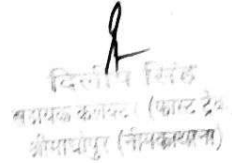 दिलीप सिंह
सहायक कलक्टर (फास्ट ट्रेक
श्रीमाधोपुर (नीमकाथाना)